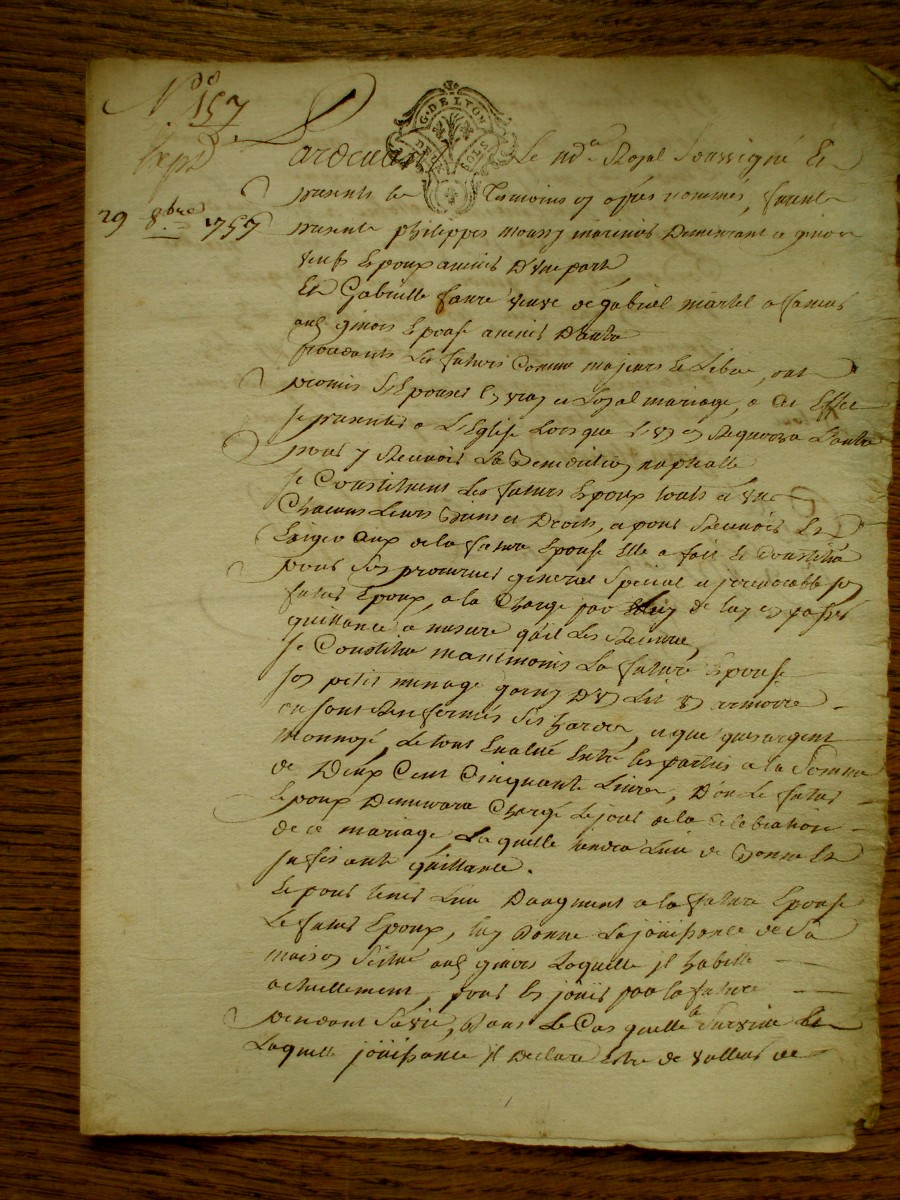 N° 157
Expd
29 8bre 1757
G. DE LYON
DEUX SOLS
Pardevant Le nore Royal Soussigné Et
presents les Temoins cy apres nommés, furent
presents philippes moussy marinier Demeurant a givors
veuf Epoux avenir D'une part
Et Gabrielle faure veuve de gabriel martel
aud givors Epouse avenir D'autre
procedants Les futurs Comme majeurs Et Libres, ont
promis S'Epouser En vray et Loyal mariage, a Cet Effet
se presenter a L'Eglise Lorsque L'un En Requerra L'autre
pour y Recevoir La Benediction nuptialle
Se Constituent Les futurs Epoux touts a un
Chacuns Leurs Biens et Droits, et pour Recevoir Et
Exiger Ceux de la future Epouse Elle a fait Et Constitué
pour Son procureur general Special et jrrevocable son
futur Epoux, a la Charge par luy de luy en passer
quittance a mesure qu'il Les Recevra,
Se Constitue La future Epouse
son petit menage garny D'un Lit un armoire
ou sont Renfermés Ses hardes, et quelques argent
Monnoyé, Le tout Evalué Entre les parties a la Somme
de Deux Cent Cinquante Livres, D'ou Le futur
Epoux Demeurera Chargé Le jour de la Celebration
de ce mariage Laquelle tiendra Lieu de Bonne Et
sufisante quittance.
Et pour tenir Lieu D'augment a la future Epouse
Le futur Epoux, luy Donne La joüissance de Sa
maison Scitue aud givors Laquelle jl habitte
actuellement, pour En joüir par la future
pendant Sa vie, Dans Le Cas quelle Le Survive
Laquelle joüissance jl Declare Estre de valleur de